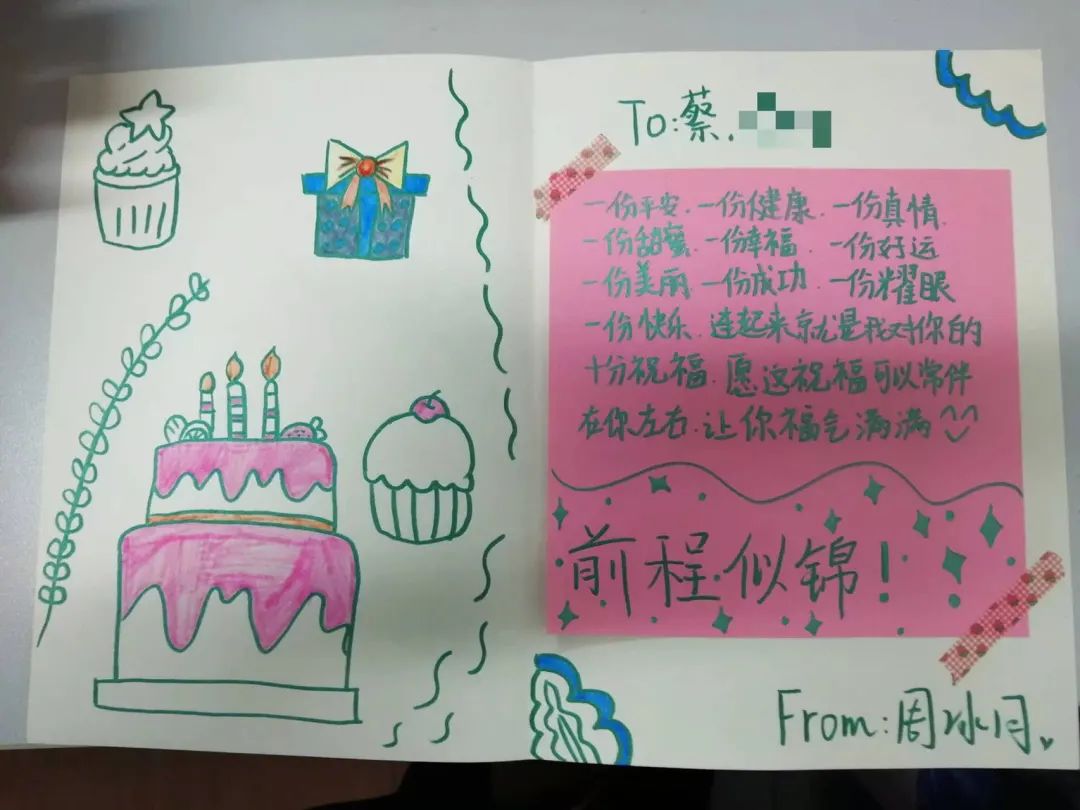 To:蔡.
一份平安.一份健康.一份真情.
一份甜蜜.一份幸福.一份好运
一份美丽.一份成功.一份耀眼
一份快乐.连起来就是我对你的
十分祝福.愿这祝福可以常伴
在你左右.让你福气满满
前程似锦!
From:周冰月.